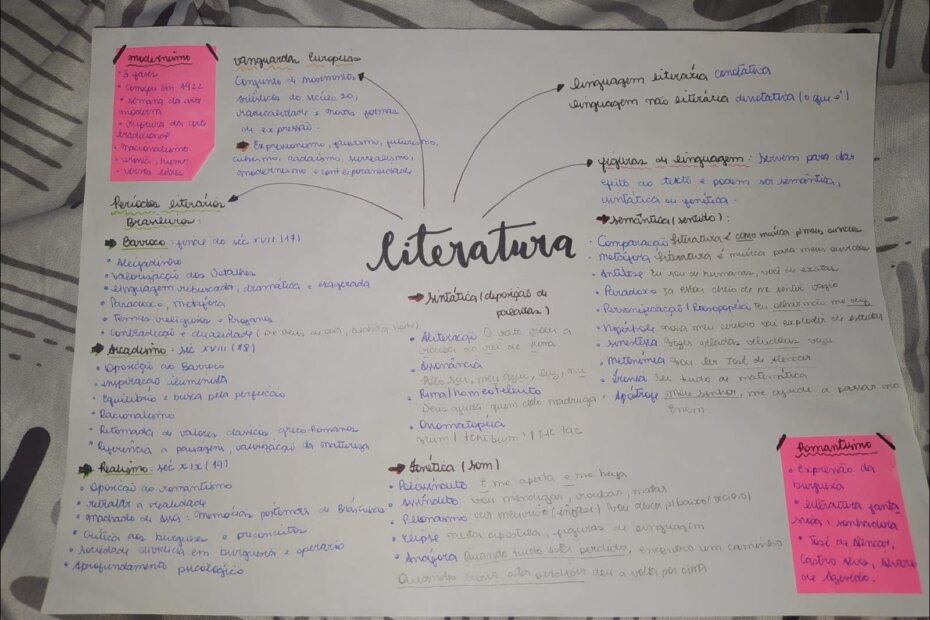 modernismo
• 3 fases
• começou em 1922
• semana da arte
moderna
• ruptura da arte
tradicional
• nacionalismo
• ironia, humor
• versos livres
vanguardas Europeias
Conjunto de movimentos
artísticos do século 20,
novas formas
de expressão.
Expressionismo, fauvismo, futurismo,
cubismo, dadaísmo, surrealismo,
modernismo e contemporaneidade
linguagem literária conotativa
linguagem não literária denotativa (o que é)
figuras de linguagem: servem para dar
efeito ao texto e podem ser semântica,
sintática ou fonética.
Semântica (sentido):
• Comparação literatura é como música p/ meus ouvidos
• metáfora literatura é música para meus ouvidos
• Antítese Eu sou de humanas, você de exatas
• Paradoxo Já estou cheio de me sentir vazio
• Personificação / Prosopopéia Teu olhar não me diz
• Hipérbole meu cérebro vai explodir de estudar
• sinestesia vozes veladas veludosas vozes
• Metonímia Vou ler José de Alencar
• Ironia Sei tudo de matemática
• Apóstrofe Meu senhor, me ajude a passar no
Enem.
Períodos literários
Brasileiros:
Barroco: final do séc XVII (17)
• Aleijadinho
• valorização dos detalhes
• linguagem rebuscada, dramática e exagerada
• Paradoxo, metáfora
• Temas religiosos e Profanos
• contradição e dualidade
Arcadismo: séc XVIII (18)
• Oposição ao Barroco
• inspiração iluminista
• Equilíbrio e busca pela perfeição
• Racionalismo
• Retomada de valores clássicos greco-romanos
• Referência a paisagem, valorização da natureza
Realismo: séc XIX (19)
• Oposição ao romantismo
• retratar a realidade
• machado de Assis: memórias póstumas de Brás Cubas
• crítica aos burgueses e preconceitos
• sociedade dividida em burguesia e operário
• Aprofundamento psicológico
literatura
sintática (deposição de
palavras)
• Aliteração O rato roeu a
roupa do rei de roma
• Assonância
meu
• Rima/homeoteleuto
Deus ajuda quem cedo madruga
• Onomatopéia
zum / tchibum / tic tac
fonética (som)
• Polissíndeto E me aperta e me beija
• assíndeto vou mendigar, roubar, matar
• Pleonasmo
• elipse figuras de linguagem
• Anáfora Quando tudo está perdido, encontro um caminho
Quando tudo está perdido dou a volta por cima
Romantismo
• Expressão da
burguesia
• literatura fanta
siosa e sonhadora
• José de Alencar,
Castro Alves, Álvares
de Azevedo.